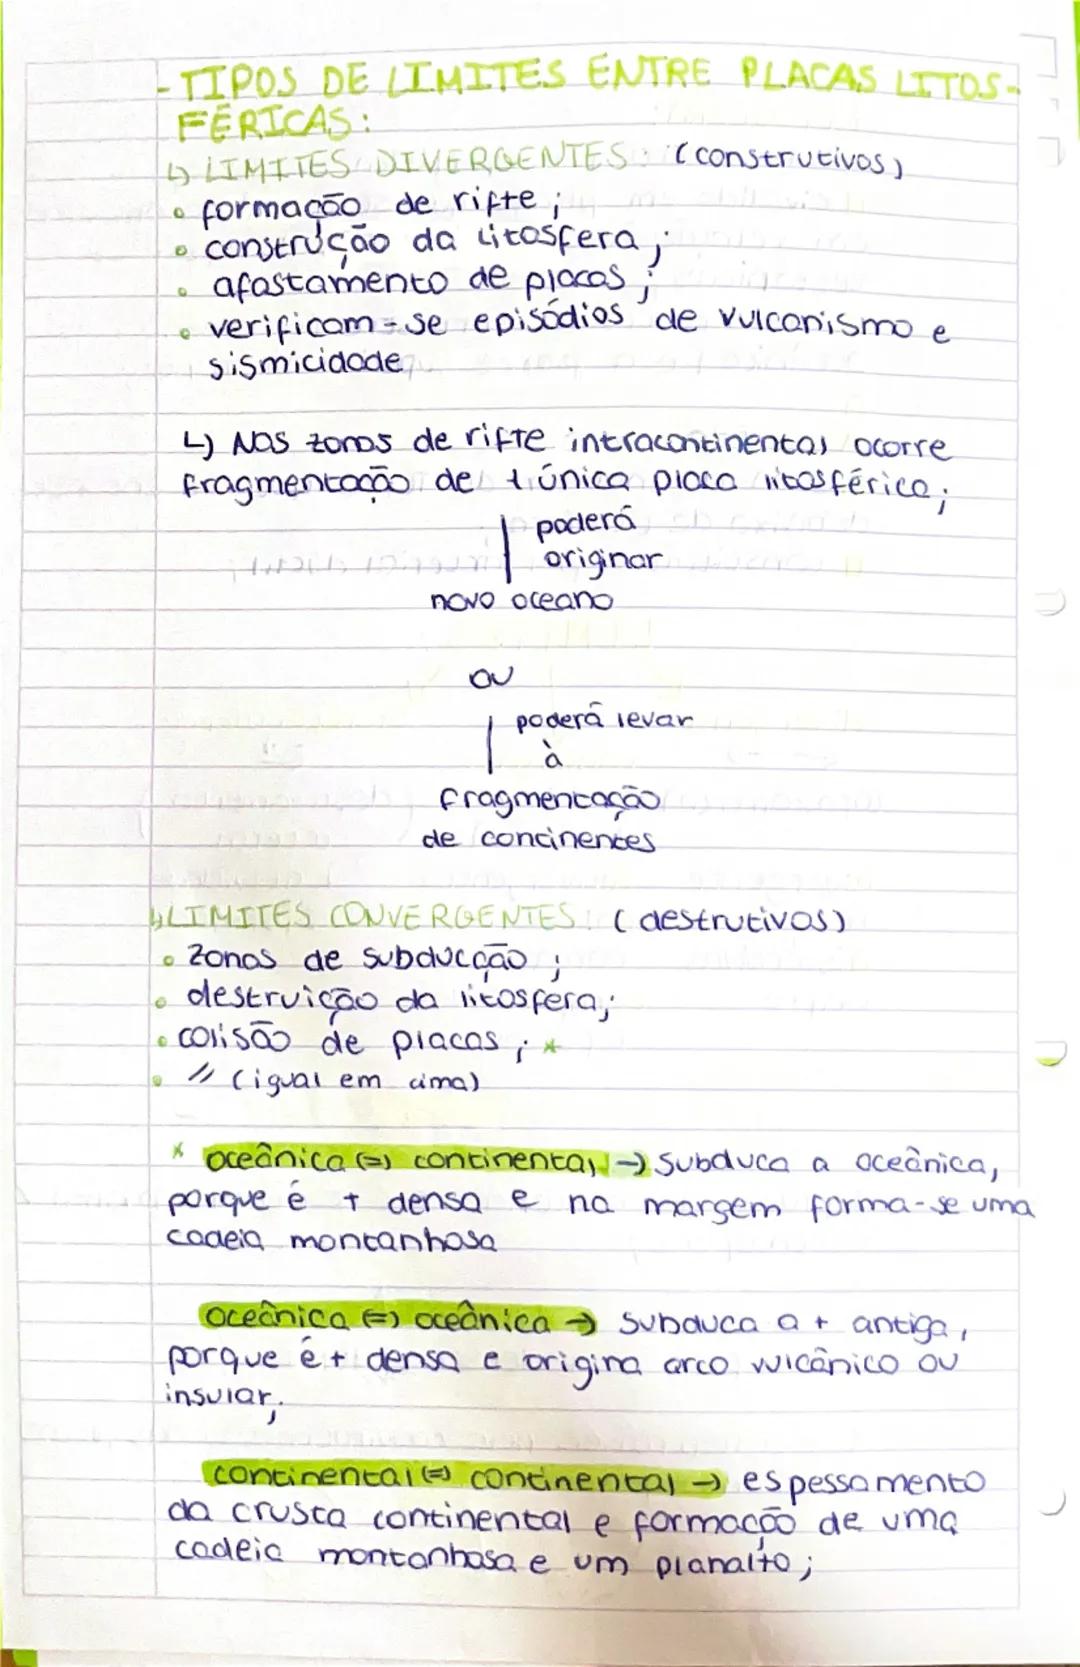 - TIPOS DE LIMITES ENTRE PLACAS LITOS-
FÉRICAS:
↳ LIMITES DIVERGENTES: (construtivos)
• formação de rifte;
• construção da litosfera;
• afastamento de placas;
• verificam-se episódios de vulcanismo e
sismicidade
↳ Nas zonas de rifte intracontinental ocorre
fragmentação de 1 única placa litosférica;
poderá
originar
novo oceano
ou
poderá levar
à
fragmentação
de continentes
↳ LIMITES CONVERGENTES: (destrutivos)
• zonas de subducção;
• destruição da litosfera;
• colisão de placas; *
• // (igual em cima)
* oceânica (=) continental → Subduca a oceânica,
porque é + densa e na margem forma-se uma
cadeia montanhosa
oceânica (=) oceânica → Subduca a + antiga,
porque é + densa e origina arco vulcânico ou
insular;
continental (=) continental → espessamento
da crusta continental e formação de uma
cadeia montanhosa e um planalto;